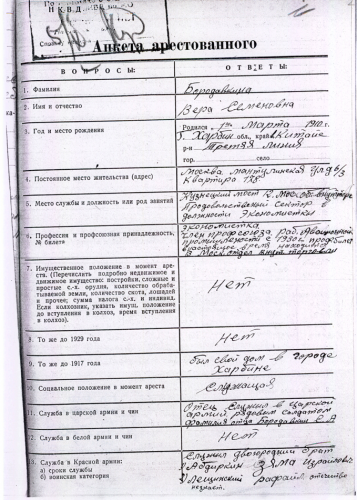 Н К В Д
Анкета арестованного
ВОПРОСЫ:
ОТВЕТЫ:
1. Фамилия
Бородавкина
2. Имя и отчество
Вера Семеновна
3. Год и место рождения
Родился 1го Марта 1910 г.
г. Харбин обл., край Китай
р-н Третья линия
гор. село
4. Постоянное место жительства (адрес)
Москва
Квартира 135
5. Место службы и должность или род занятий
Кузнецкий мост
Продовольственный Сектор в
должности Экономистки
6. Профессия и профсоюзная принадлежность,
№ билета
экономистка
Член профсоюза раб. Авиационной
промышленности с 1930 г.
7. Имущественное положение в момент аре-
ста. (Перечислить подробно недвижимое и
движимое имущество: постройки, сложные и
простые с.-х. орудия, количество обраба-
тываемой земли, количество скота, лошадей
и прочее; сумма налога с.-х. и индивид.
Если колхозник, указать имущ. положение
до вступления в колхоз, время вступления
в колхоз).
Нет
8. То же до 1929 года
Нет
9. То же до 1917 года
был свой дом в городе
Харбине
10. Социальное положение в момент ареста
Служащая
11. Служба в царской армии и чин
Отец служил в царской
армии рядовым солдатом
фамилия отца Бородавкин С. А
12. Служба в белой армии и чин
Нет
13. Служба в Красной армии:
а) сроки службы
б) воинская категория
Служил двоюродный брат
Зяма Израилович
Лещинский Рафаил отчество
неизвест.